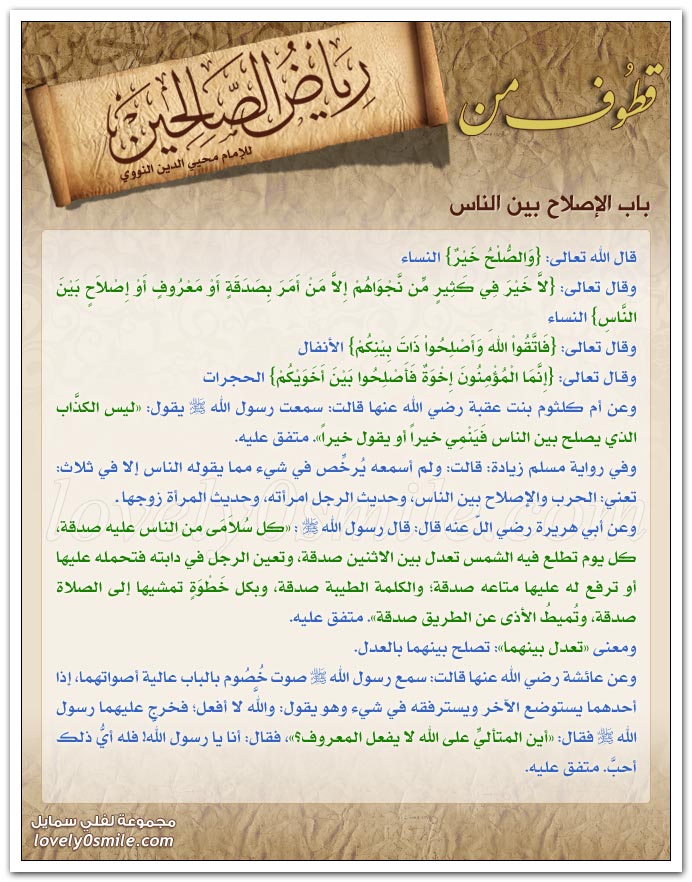 قطوف من
رياض الصالحين
للإمام محيي الدين النووي
باب الإصلاح بين الناس
قال الله تعالى: {وَالصُّلْحُ خَيْرٌ} النساء
وقال تعالى: {لاَّ خَيْرَ فِي كَثِيرٍ مِّن نَّجْوَاهُمْ إِلاَّ مَنْ أَمَرَ بِصَدَقَةٍ أَوْ مَعْرُوفٍ أَوْ إِصْلاَحٍ بَيْنَ
النَّاسِ} النساء
وقال تعالى: {فَاتَّقُواْ اللهَ وَأَصْلِحُواْ ذَاتَ بِيْنِكُمْ} الأنفال
وقال تعالى: {إِنَّمَا الْمُؤْمِنُونَ إِخْوَةٌ فَأَصْلِحُوا بَيْنَ أَخَوَيْكُمْ} الحجرات
وعن أم كلثوم بنت عقبة رضي الله عنها قالت: سمعت رسول الله ﷺ يقول: «ليس الكذَّاب
الذي يصلح بين الناس فَيَنْمِي خيراً أو يقول خيراً». متفق عليه.
وفي رواية مسلم زيادة: قالت: ولم أسمعه يُرخِّص في شيء مما يقوله الناس إلا في ثلاث:
تعني: الحرب والإصلاح بين الناس، وحديث الرجل امرأته، وحديث المرأة زوجها.
وعن أبي هريرة رضي اللّ عنه قال: قال رسول الله ﷺ : «كل سُلاَمَى من الناس عليه صدقة،
كل يوم تطلع فيه الشمس تعدل بين الاثنين صدقة، وتعين الرجل في دابته فتحمله عليها
أو ترفع له عليها متاعه صدقة؛ والكلمة الطيبة صدقة، وبكل خَطْوَةٍ تمشيها إلى الصلاة
صدقة، وتُميطُ الأذى عن الطريق صدقة». متفق عليه.
ومعنى «تعدل بينهما»: تصلح بينهما بالعدل.
وعن عائشة رضي الله عنها قالت: سمع رسول الله ﷺ صوت خُصُوم بالباب عالية أصواتهما، إذا
أحدهما يستوضع الآخر ويسترفقه في شيء وهو يقول: والله لا أفعل؛ فخرج عليهما رسول
الله ﷺ فقال: «أين المتأليِّ على الله لا يفعل المعروف؟»، فقال: أنا يا رسول الله! فله أيُّ ذلك
أحبَّ. متفق عليه.
مجموعة لفلي سمايل
lovely0smile.com
lovely0smile.com